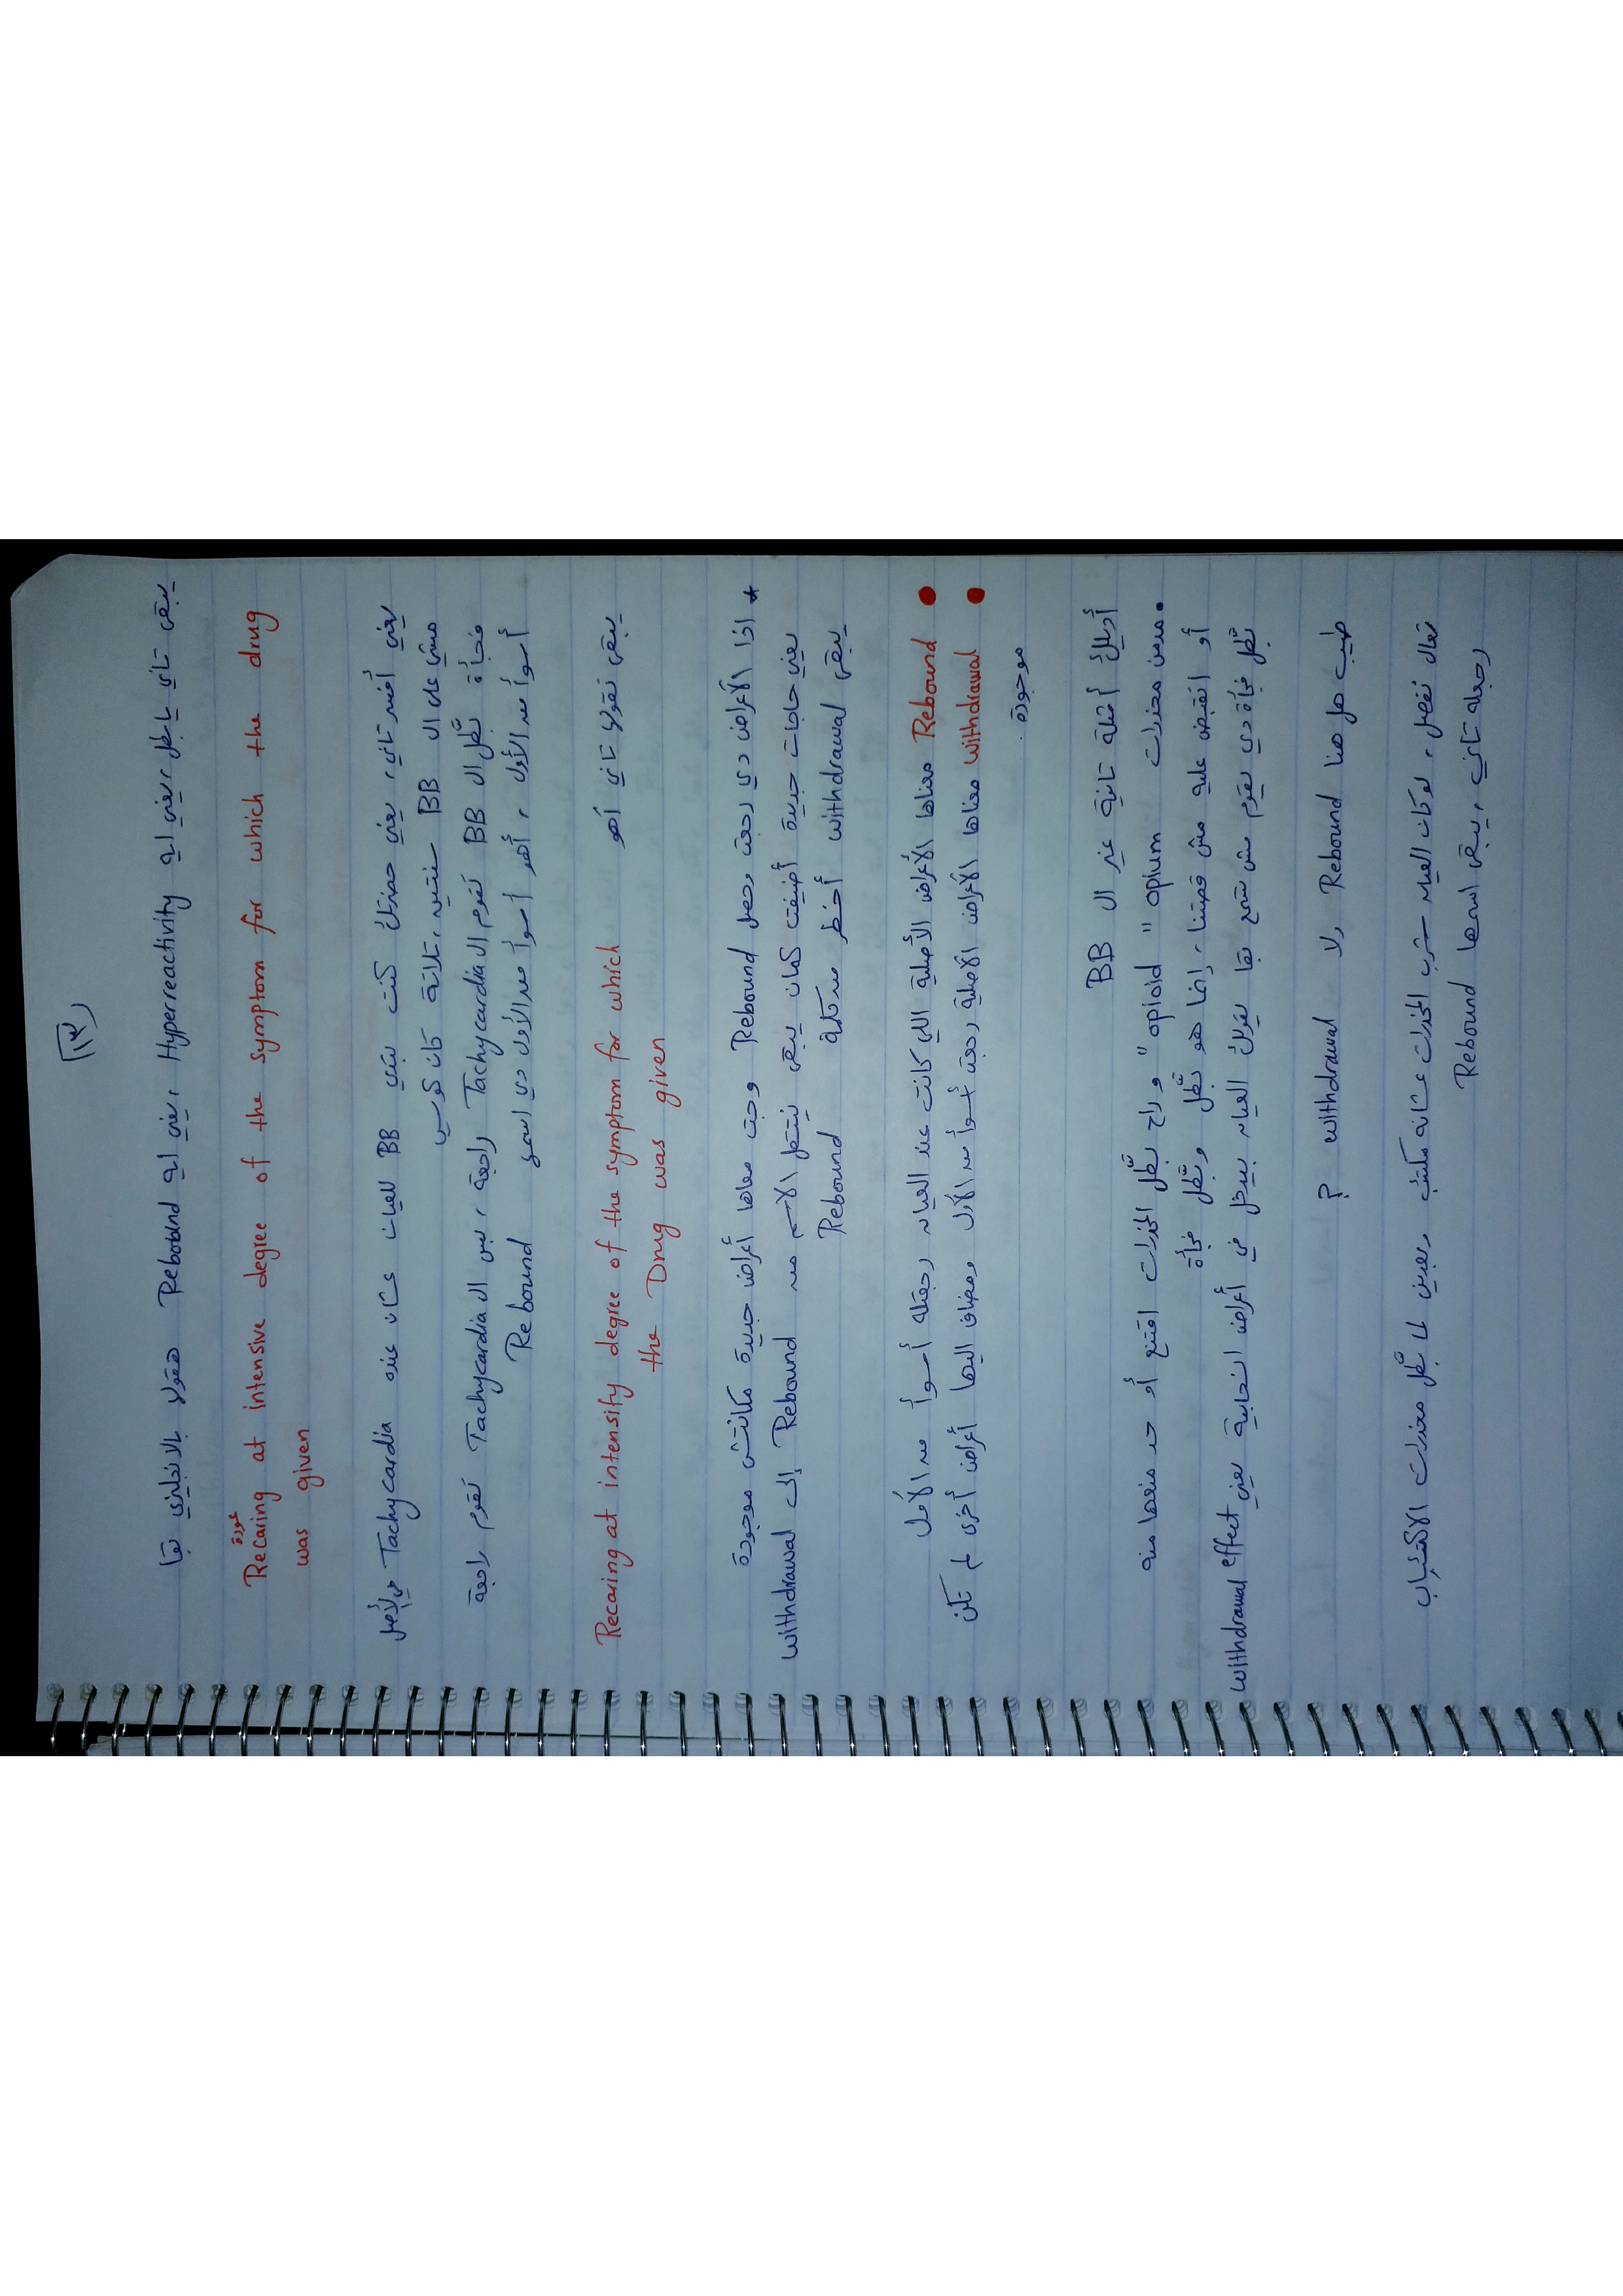 ١٣
يبقى تاني يا بطل، يعني ايه Hyperreactivity، يعني ايه Rebound هقولا بالانجليزي بقا
Recaring at intensive degree of the symptom for which the drug
عودة
was given
يعني أفسر تاني، يعني حضرتك كنت بتدي BB للعيان عشان عنده Tachycardia في الأصل
مشي على ال BB سنتين، تلاتة كان كويس
فجأة بطّل ال BB تقوم ال Tachycardia راجعة، بس ال Tachycardia تقوم راجعة
أسوأ من الأول، أهو أسوأ من الأول دي اسمها Rebound
يبقى نقولها تاني أهو
Recaring at intensify degree of the symptom for which
the Drug was given
* اذا الأعراض دي رجعت وحصل Rebound وجت معاها أعراض جديدة مكانتش موجودة
يعني حاجات جديدة أضيفت كمان يبقى ينتقل الاسم من Rebound إلى withdrawal
يبقى withdrawal أخطر من كلمة Rebound
• Rebound معناها الأعراض الأصلية اللي كانت عند العيان رجعتله أسوأ من الأول
• withdrawal معناها الأعراض الأصلية رجعت أسوأ من الأول ومضاف اليها أعراض أخرى لم تكن
موجودة.
أديلك أمثلة تانية غير ال BB
• مدمن مخدرات opioid " opium " وراح بطّل المخدرات اقتنع أو حد منعها منه
أو اتقبض عليه مش قصتنا، إنما هو بطّل وبطّل فجأة
بطّل فجأة دي يقوم مش تسمع بقا يقولك العيان بيدخل في أعراض انسحابية يعني withdrawal effect
طيب هل هنا Rebound ولا withdrawal ?
تعال نفصل، لو كان العيان بيشرب المخدرات عشانه مكتئب وبعدين لما بطّل مخدرات الاكتئاب
رجعله تاني، يبقى اسمها Rebound